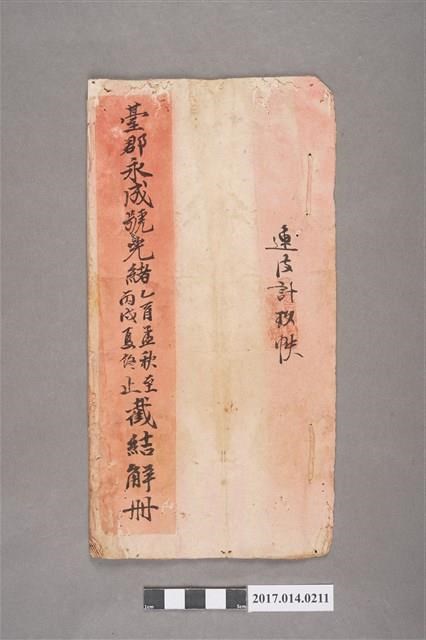 連皮計拟帙
臺郡永成號光緒乙酉孟秋至丙戌夏終止截結解冊
1cm
5cm
2017.014.0211